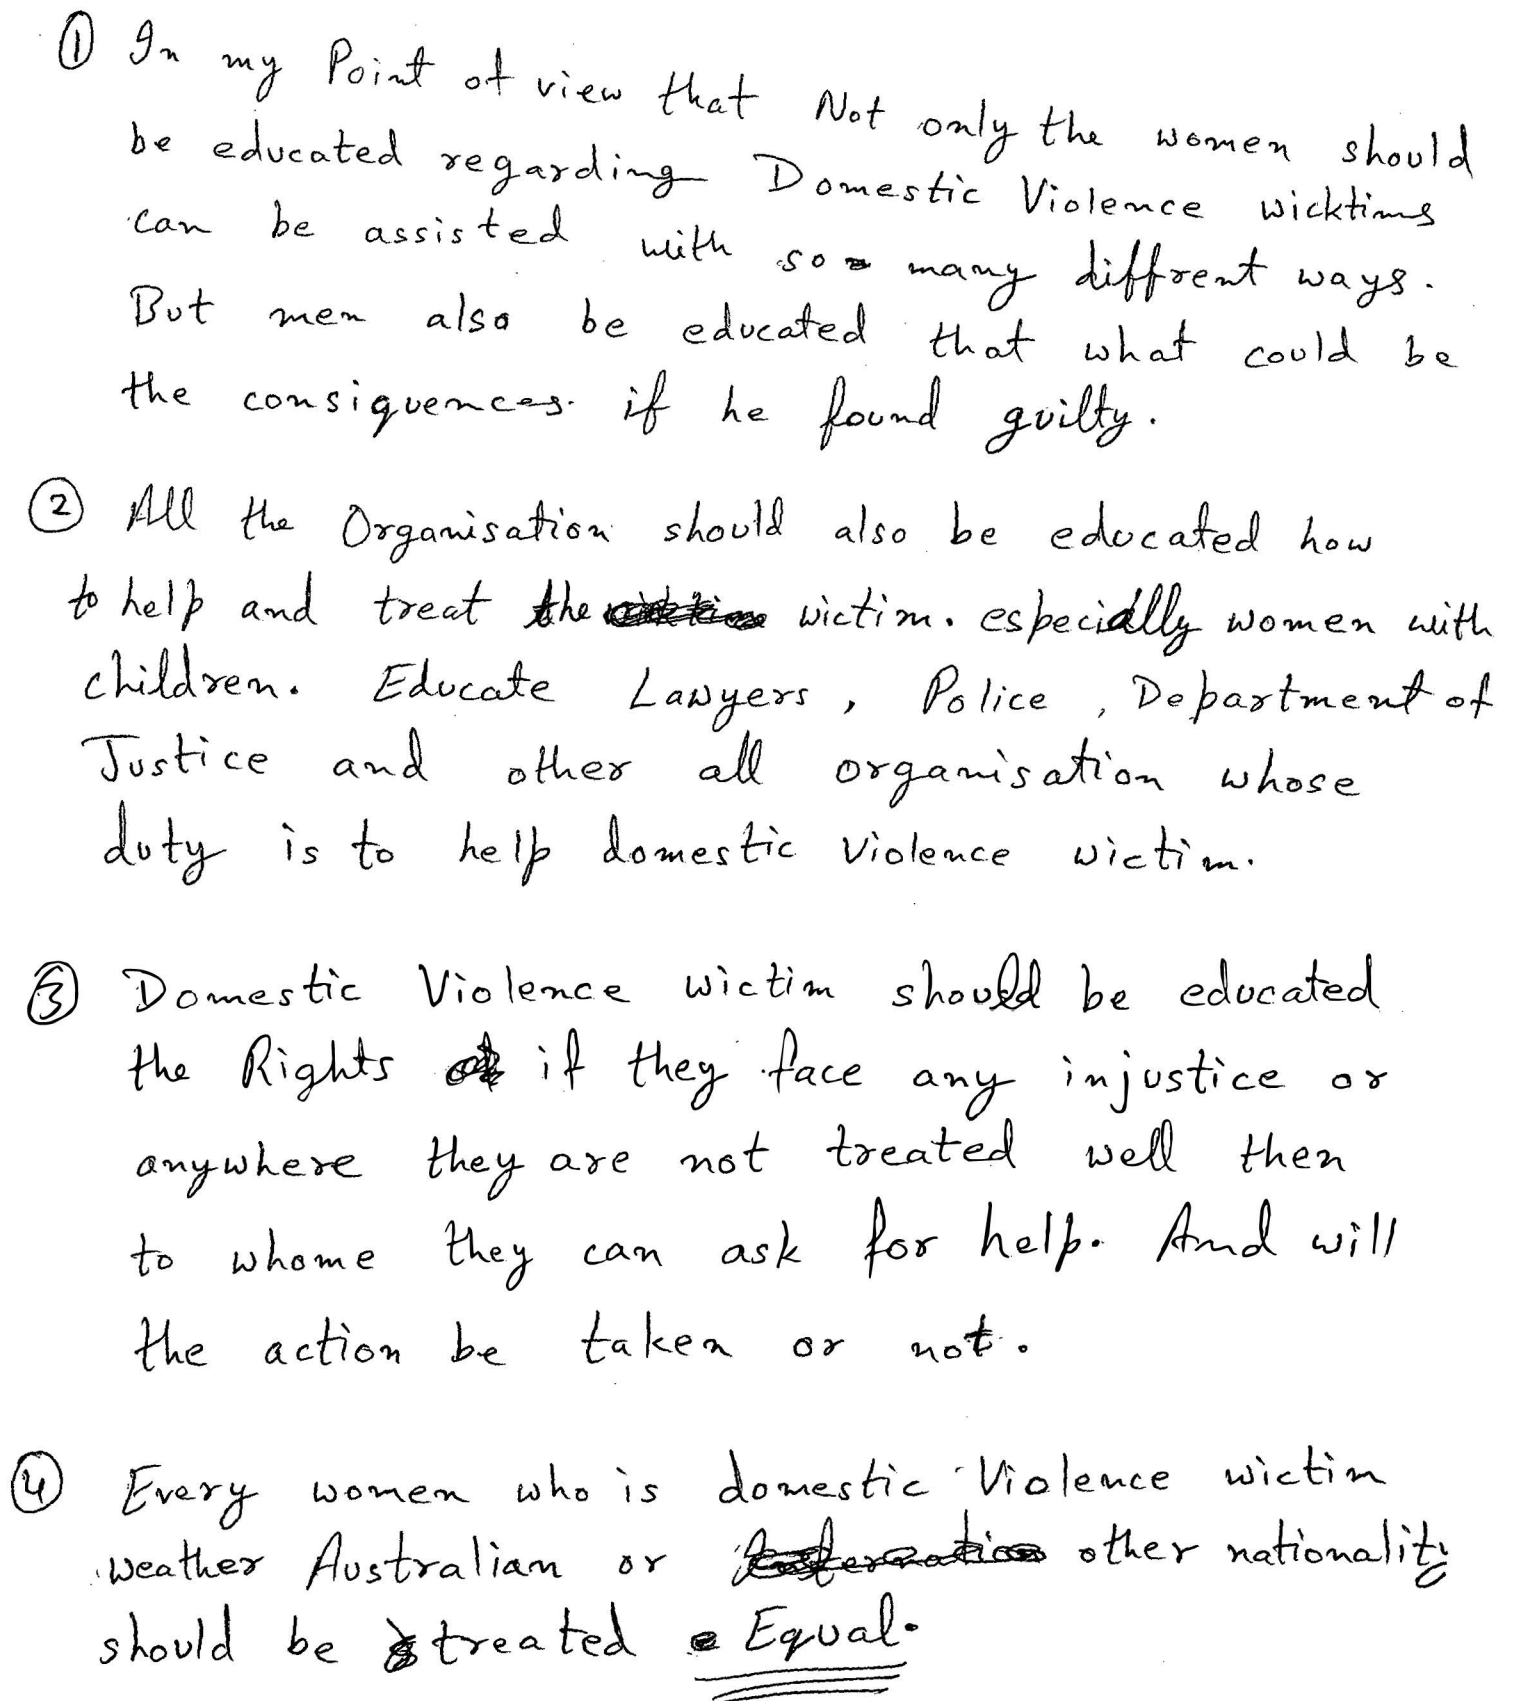 ① In my Point of view that Not only the women should
be educated regarding Domestic Violence wicktims
can be assisted with so many diffrent ways.
But men also be educated that what could be
the consiquences. if he found guilty.
② All the Organisation should also be educated how
to help and treat the wictim. especially women with
children. Educate Lawyers, Police, Department of
Justice and other all organisation whose
duty is to help domestic violence wictim.
③ Domestic Violence wictim should be educated
the Rights if they face any injustice or
anywhere they are not treated well then
to whome they can ask for help. And will
the action be taken or not.
④ Every women who is domestic Violence wictim
weather Australian or other nationality
should be treated Equal.